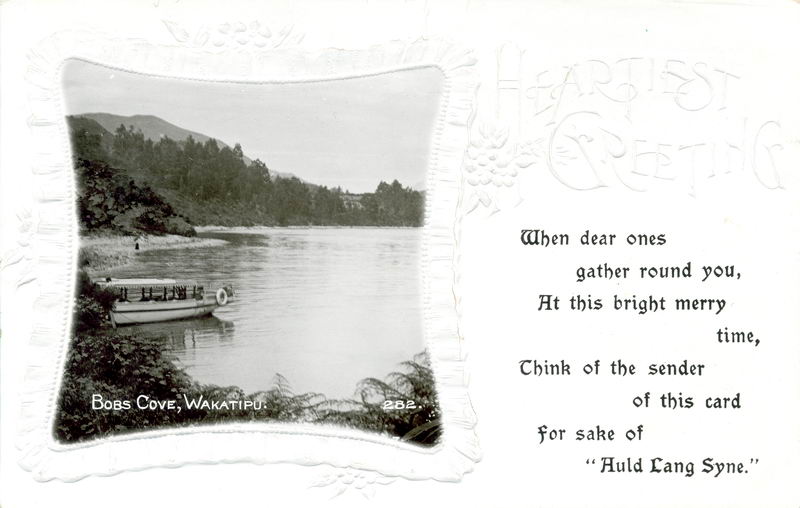 HEARTIEST
GREETING
When dear ones
gather round you,
At this bright merry
time,
Think of the sender
of this card
For sake of
"Auld Lang Syne."
BOBS COVE, WAKATIPU. 282.